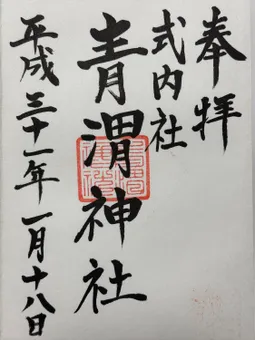 奉拝
式内社
青渭神社
平成三十一年一月十八日